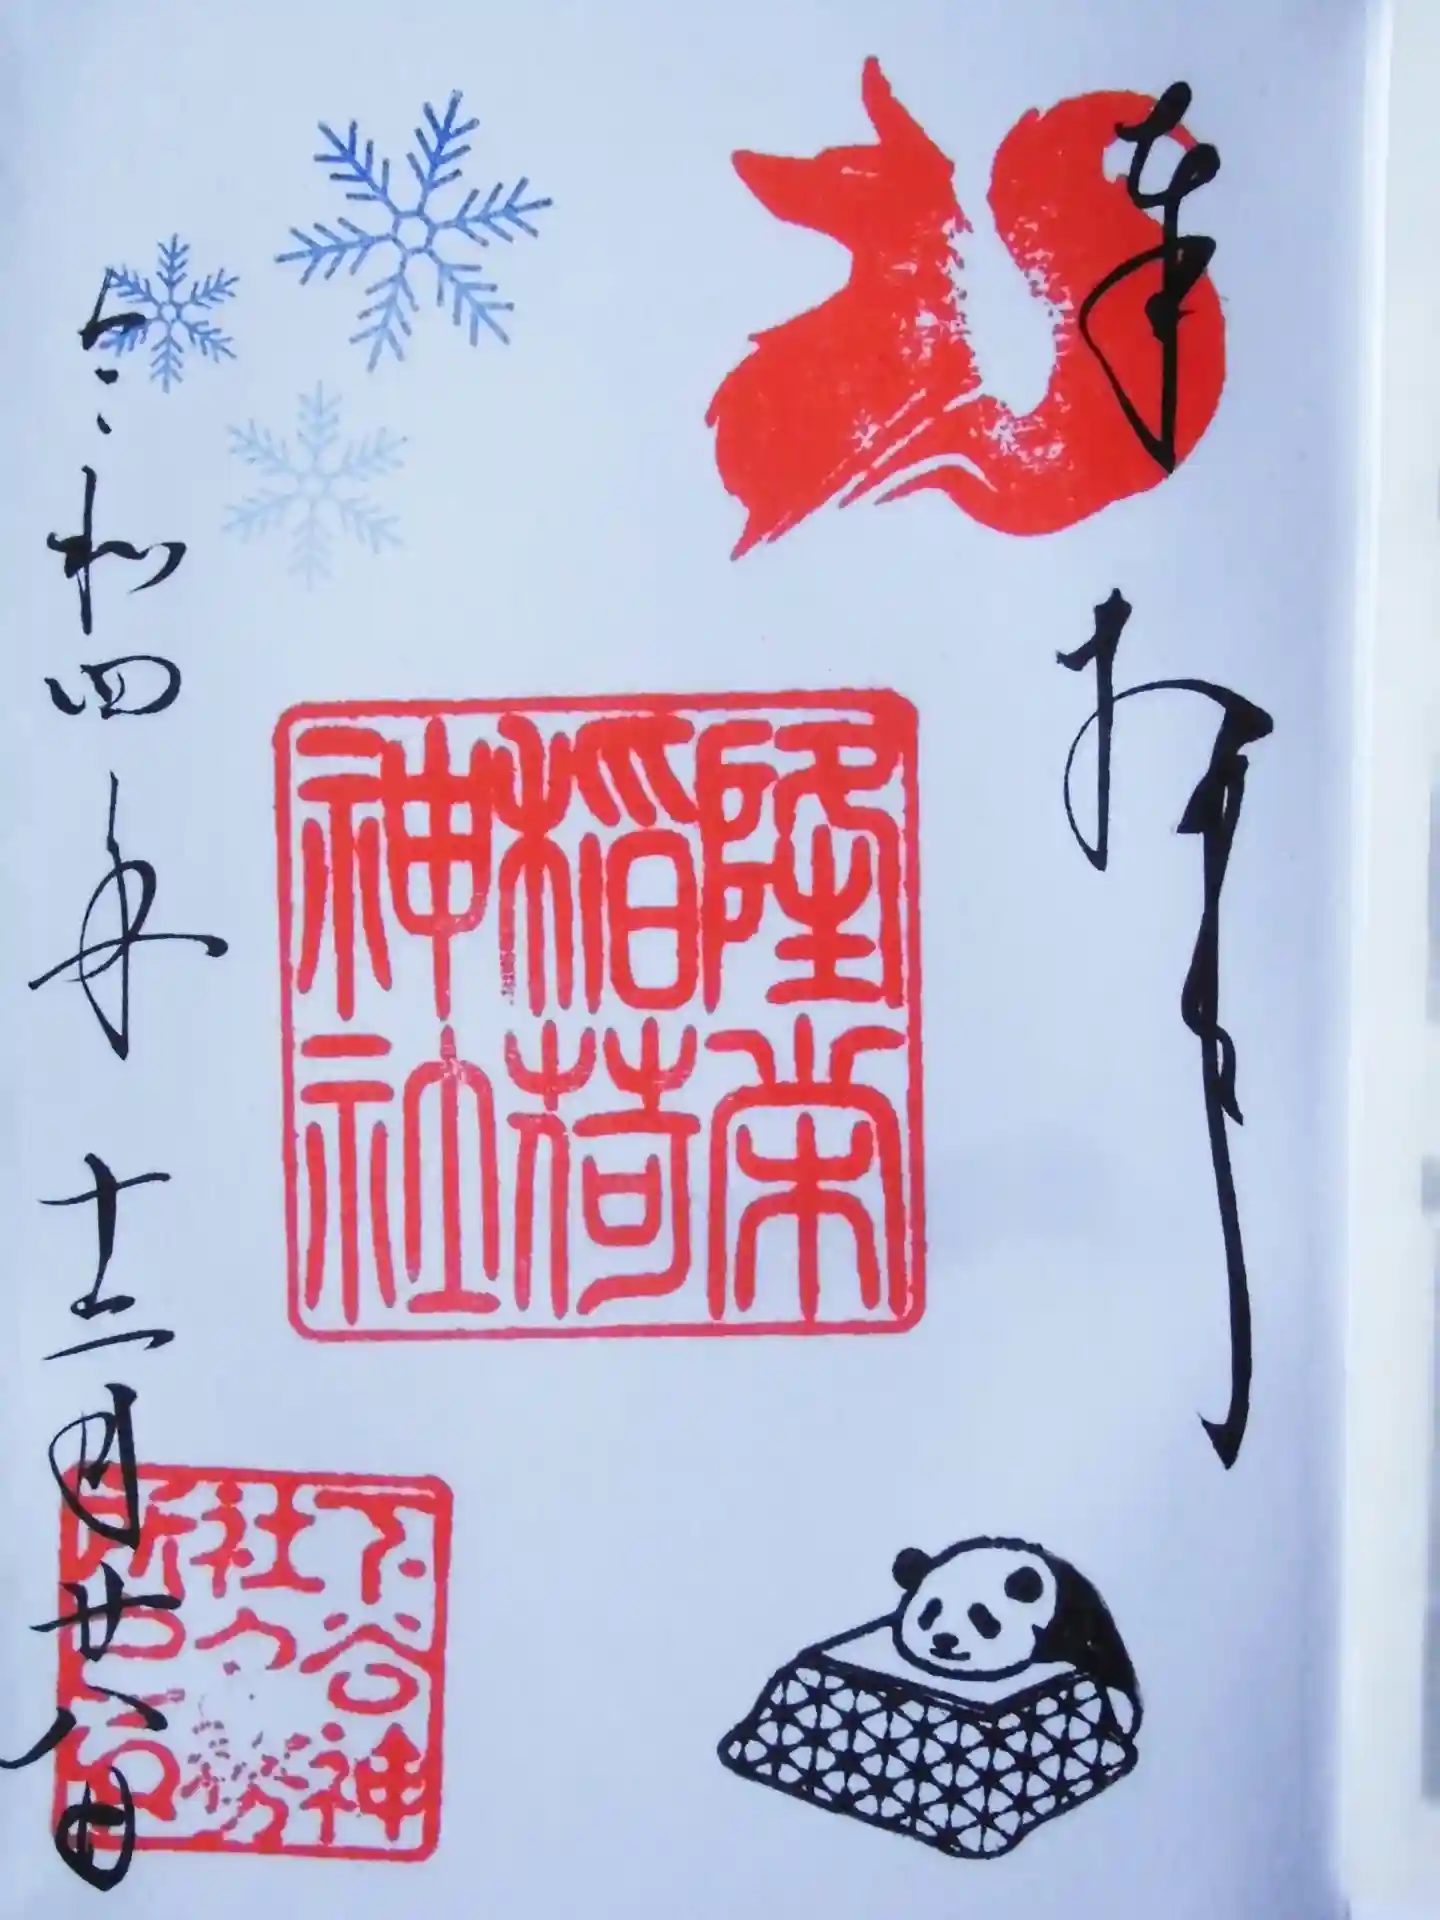 奉拝
隆栄
稲荷
神社
下谷神
社々務
所之印
令和四年十二月廿八日